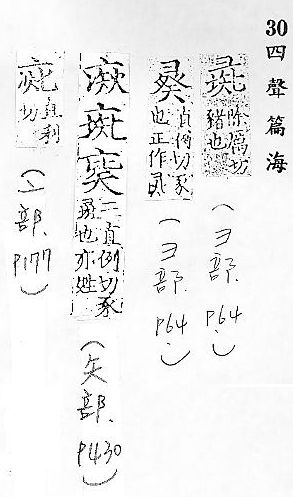 30 四聲篇海
除厲切
豬也
(彐部. p64.)
直例切豕
也正作
(彐部. p64.)
三直例切豕
彘也亦姓
(矢部. p430)
直利
切
(亠部. p177)